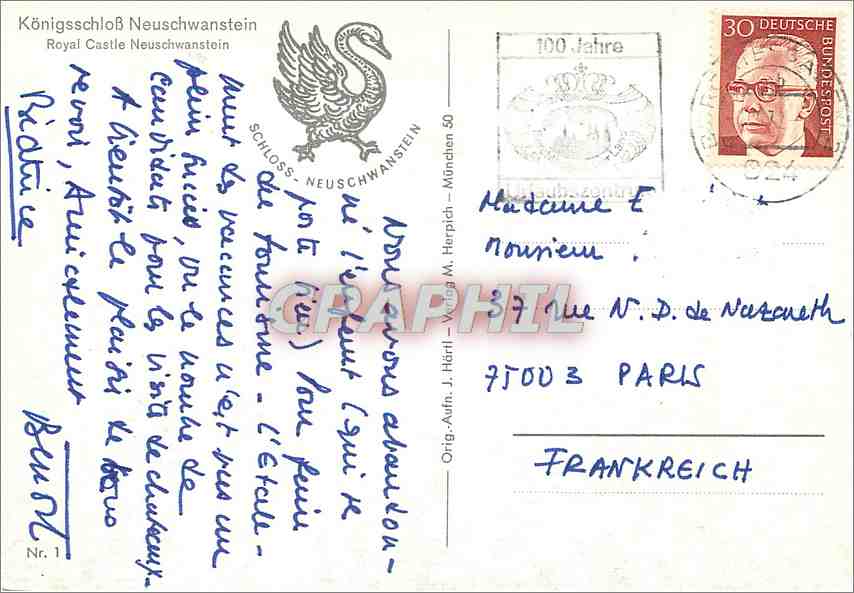 Königsschloß Neuschwanstein
Royal Castle Neuschwanstein
SCHLOSS - NEUSCHWANSTEIN
Nous avons abandon-
né l'enfant (qui se
porte bien) pour faire
du tourisme - l'Etale-
ment des vacances n'est pas un
plein succès, vu le nombre de
candidats pour les visites de chateaux.
A bientôt le plaisir de vous
revoir, Amicalement
Béatrice
Benoît
Nr. 1
Orig.-Aufn. J. Härtl - Verlag M. Herpich - München 50
100 Jahre
Urlaubszentrum
30 DEUTSCHE BUNDESPOST
Madame E
Monsieur
37 rue N. D. de Nazareth
75003 PARIS
FRANKREICH
CPAPHIL